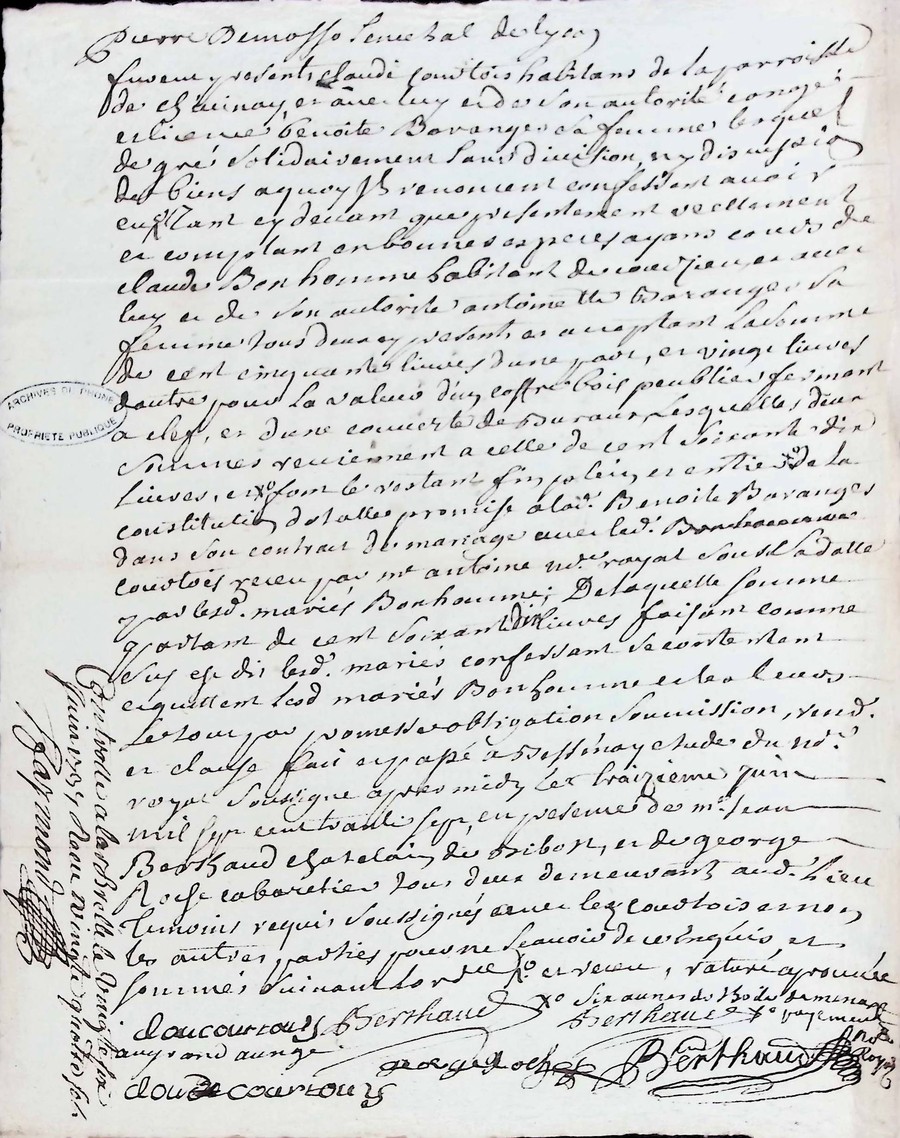 Pierre Demosso senechal de lyon
furent presents claude courtois habitans de la parroisse
de chevinay et avec luy et de son autorité congé
et licence benoite Baranges sa femme lesquel
de gré solidairement sans division, ny discussion
de biens a quoy ils renoncent confessent avoir
eu tant cy devant que presentement reellement
et comptant en bonnes especes ayans cours de
claude Bonhomme habitant de courzieu, et avec
luy et de son autorité antoinette Baranges sa
femme tous deux cy presents et acceptant la somme
de cent cinquante livres d'une part, et vingt livres
d'autre pour la valeur d'un coffre bois peublier fermant
a clef, et d'une couverte de Bureaux lesquelles deux
sommes reviennent a celle de cent soixante dix
livres, et font le restant et entier de la
constitution dotalle promise a lad. Benoite Baranges
dans son contrat de mariage avec led.
courtois receu par me antoine no.re royal sous sa datte
par lesd. mariés Bonhomme; De laquelle somme
partant de cent soixante dix livres faisant comme
sus est dit lesd. mariés confessent se contentent
et quittent lesd mariés Bonhomme et les leurs
Le tout par promesse obligation soumission, rend.
et clause fait et passé a Bessenay etude du no.re
royal soussigné apres midy le traizieme juin
mil sept cent trante sept, en presence de mr Jean
Berthaud chatelain de Ribost, et de george
Roche cabaretier tous deux demeurant aud. Lieu
Temoins requis soussignés avec led courtois et non
les autres parties pour ne sçavoir de ce enquis, et
sommés suivant lord.ce et receu, raturé aprouvée
xo six aunes de thoile de menage
claucourtois Berthaud Berthaud xo payement
au grand aunage
george Roche Berthaud no.re Royal
claude courtois
Controllé a larbrelle le vingt six
juin 1737 Reçu vingt quatre sols
Raymond
ARCHIVES DU RHONE
PROPRIETE PUBLIQUE